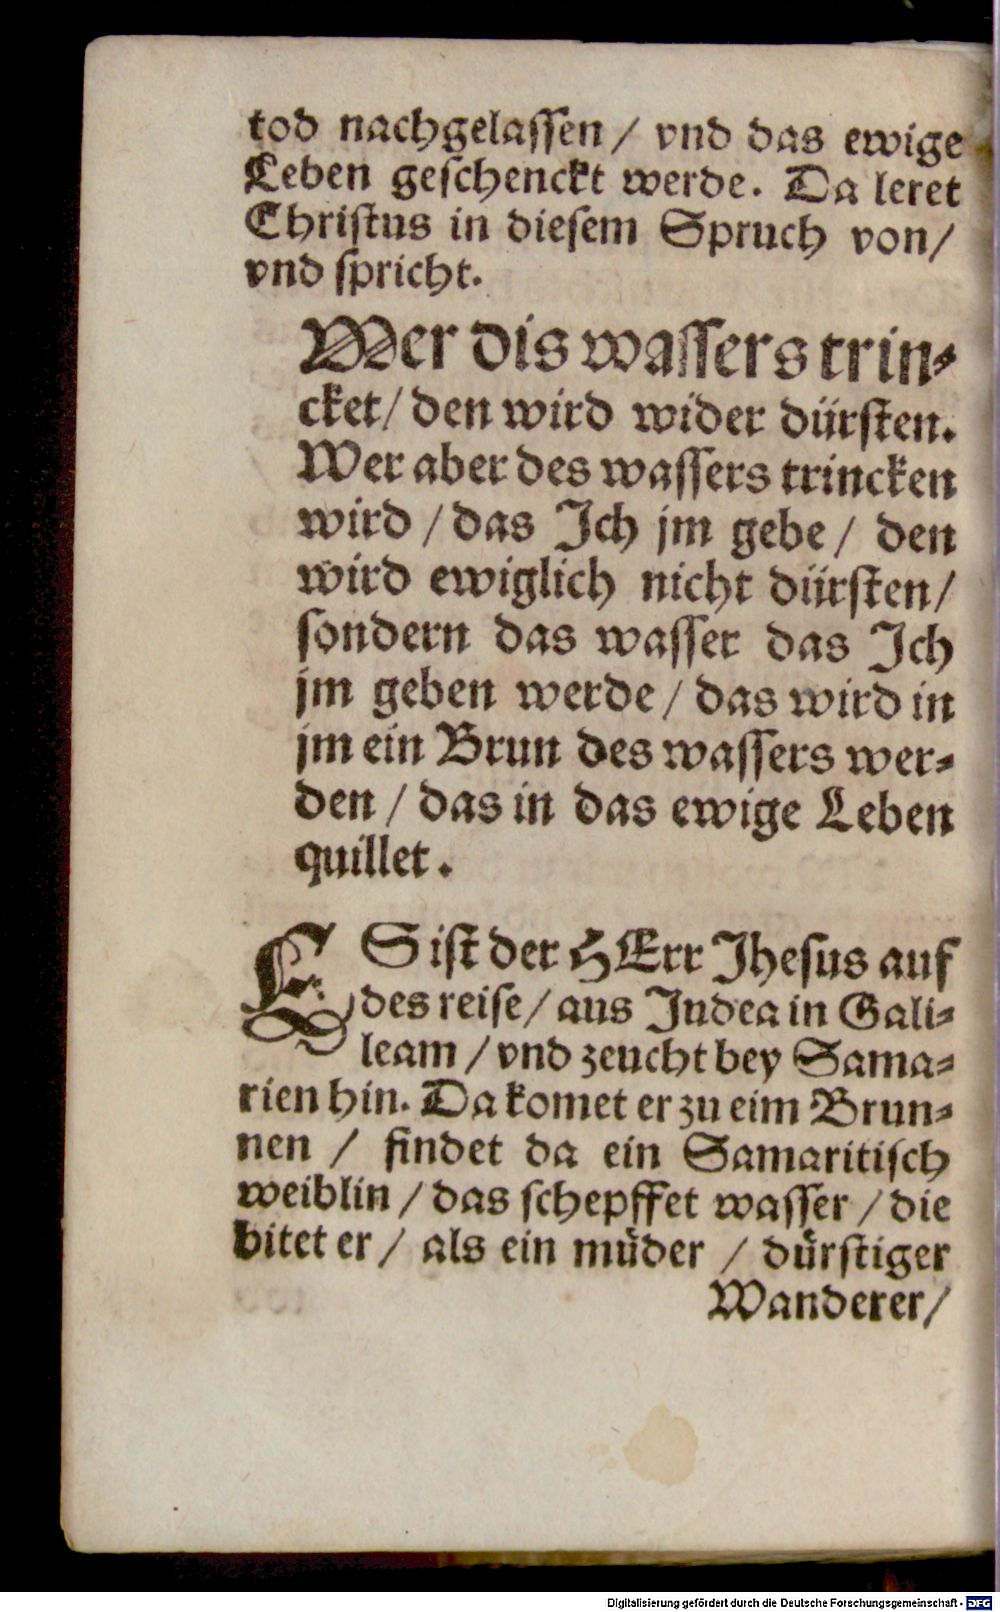 tod nachgelassen / vnd das ewige
Leben geschenckt werde. Da leret
Christus in diesem Spruch von/
vnd spricht.
Wer dis wassers trin⸗
cket/ den wird wider dürsten.
Wer aber des wassers trincken
wird / das Ich jm gebe / den
wird ewiglich nicht dürsten/
sondern das wasser das Ich
jm geben werde / das wird in
jm ein Brun des wassers wer⸗
den / das in das ewige Leben
quillet.
ES ist der HErr Jhesus auf
des reise/ aus Judea in Gali⸗
leam / vnd zeucht bey Sama⸗
rien hin. Da komet er zu eim Brun⸗
nen / findet da ein Samaritisch
weiblin / das schepffet wasser / die
bitet er / als ein müder / dürstiger
Wanderer/
Digitalisierung gefördert durch die Deutsche Forschungsgemeinschaft - DFG